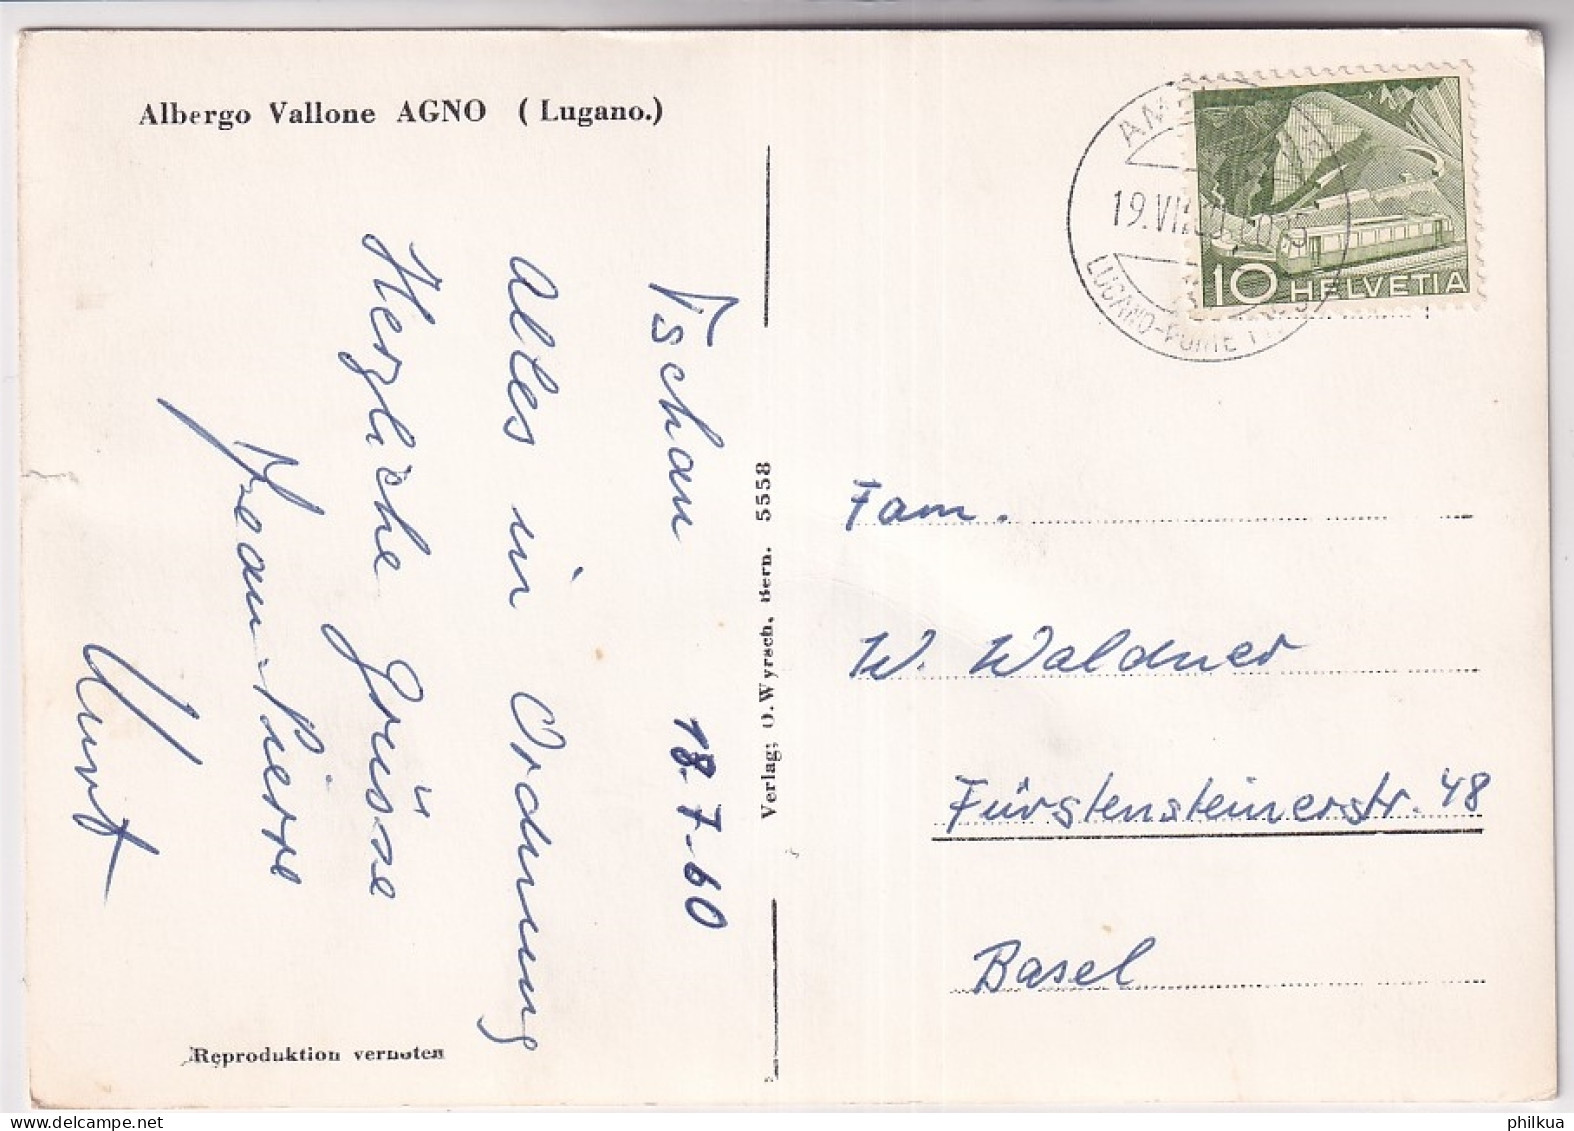 Albergo Vallone AGNO (Lugano.)
19.VII.60
LUGANO-PONTE TRESA
10 HELVETIA
Tschau 18.7.60
Alles in Ordnung
Herzliche Grüsse
Jean-Pierre
Kurt
Verlag; O. Wyrsch, Bern. 5558
Fam.
W. Waldner
Fürstensteinerstr. 48
Basel
Reproduktion verboten
philkua